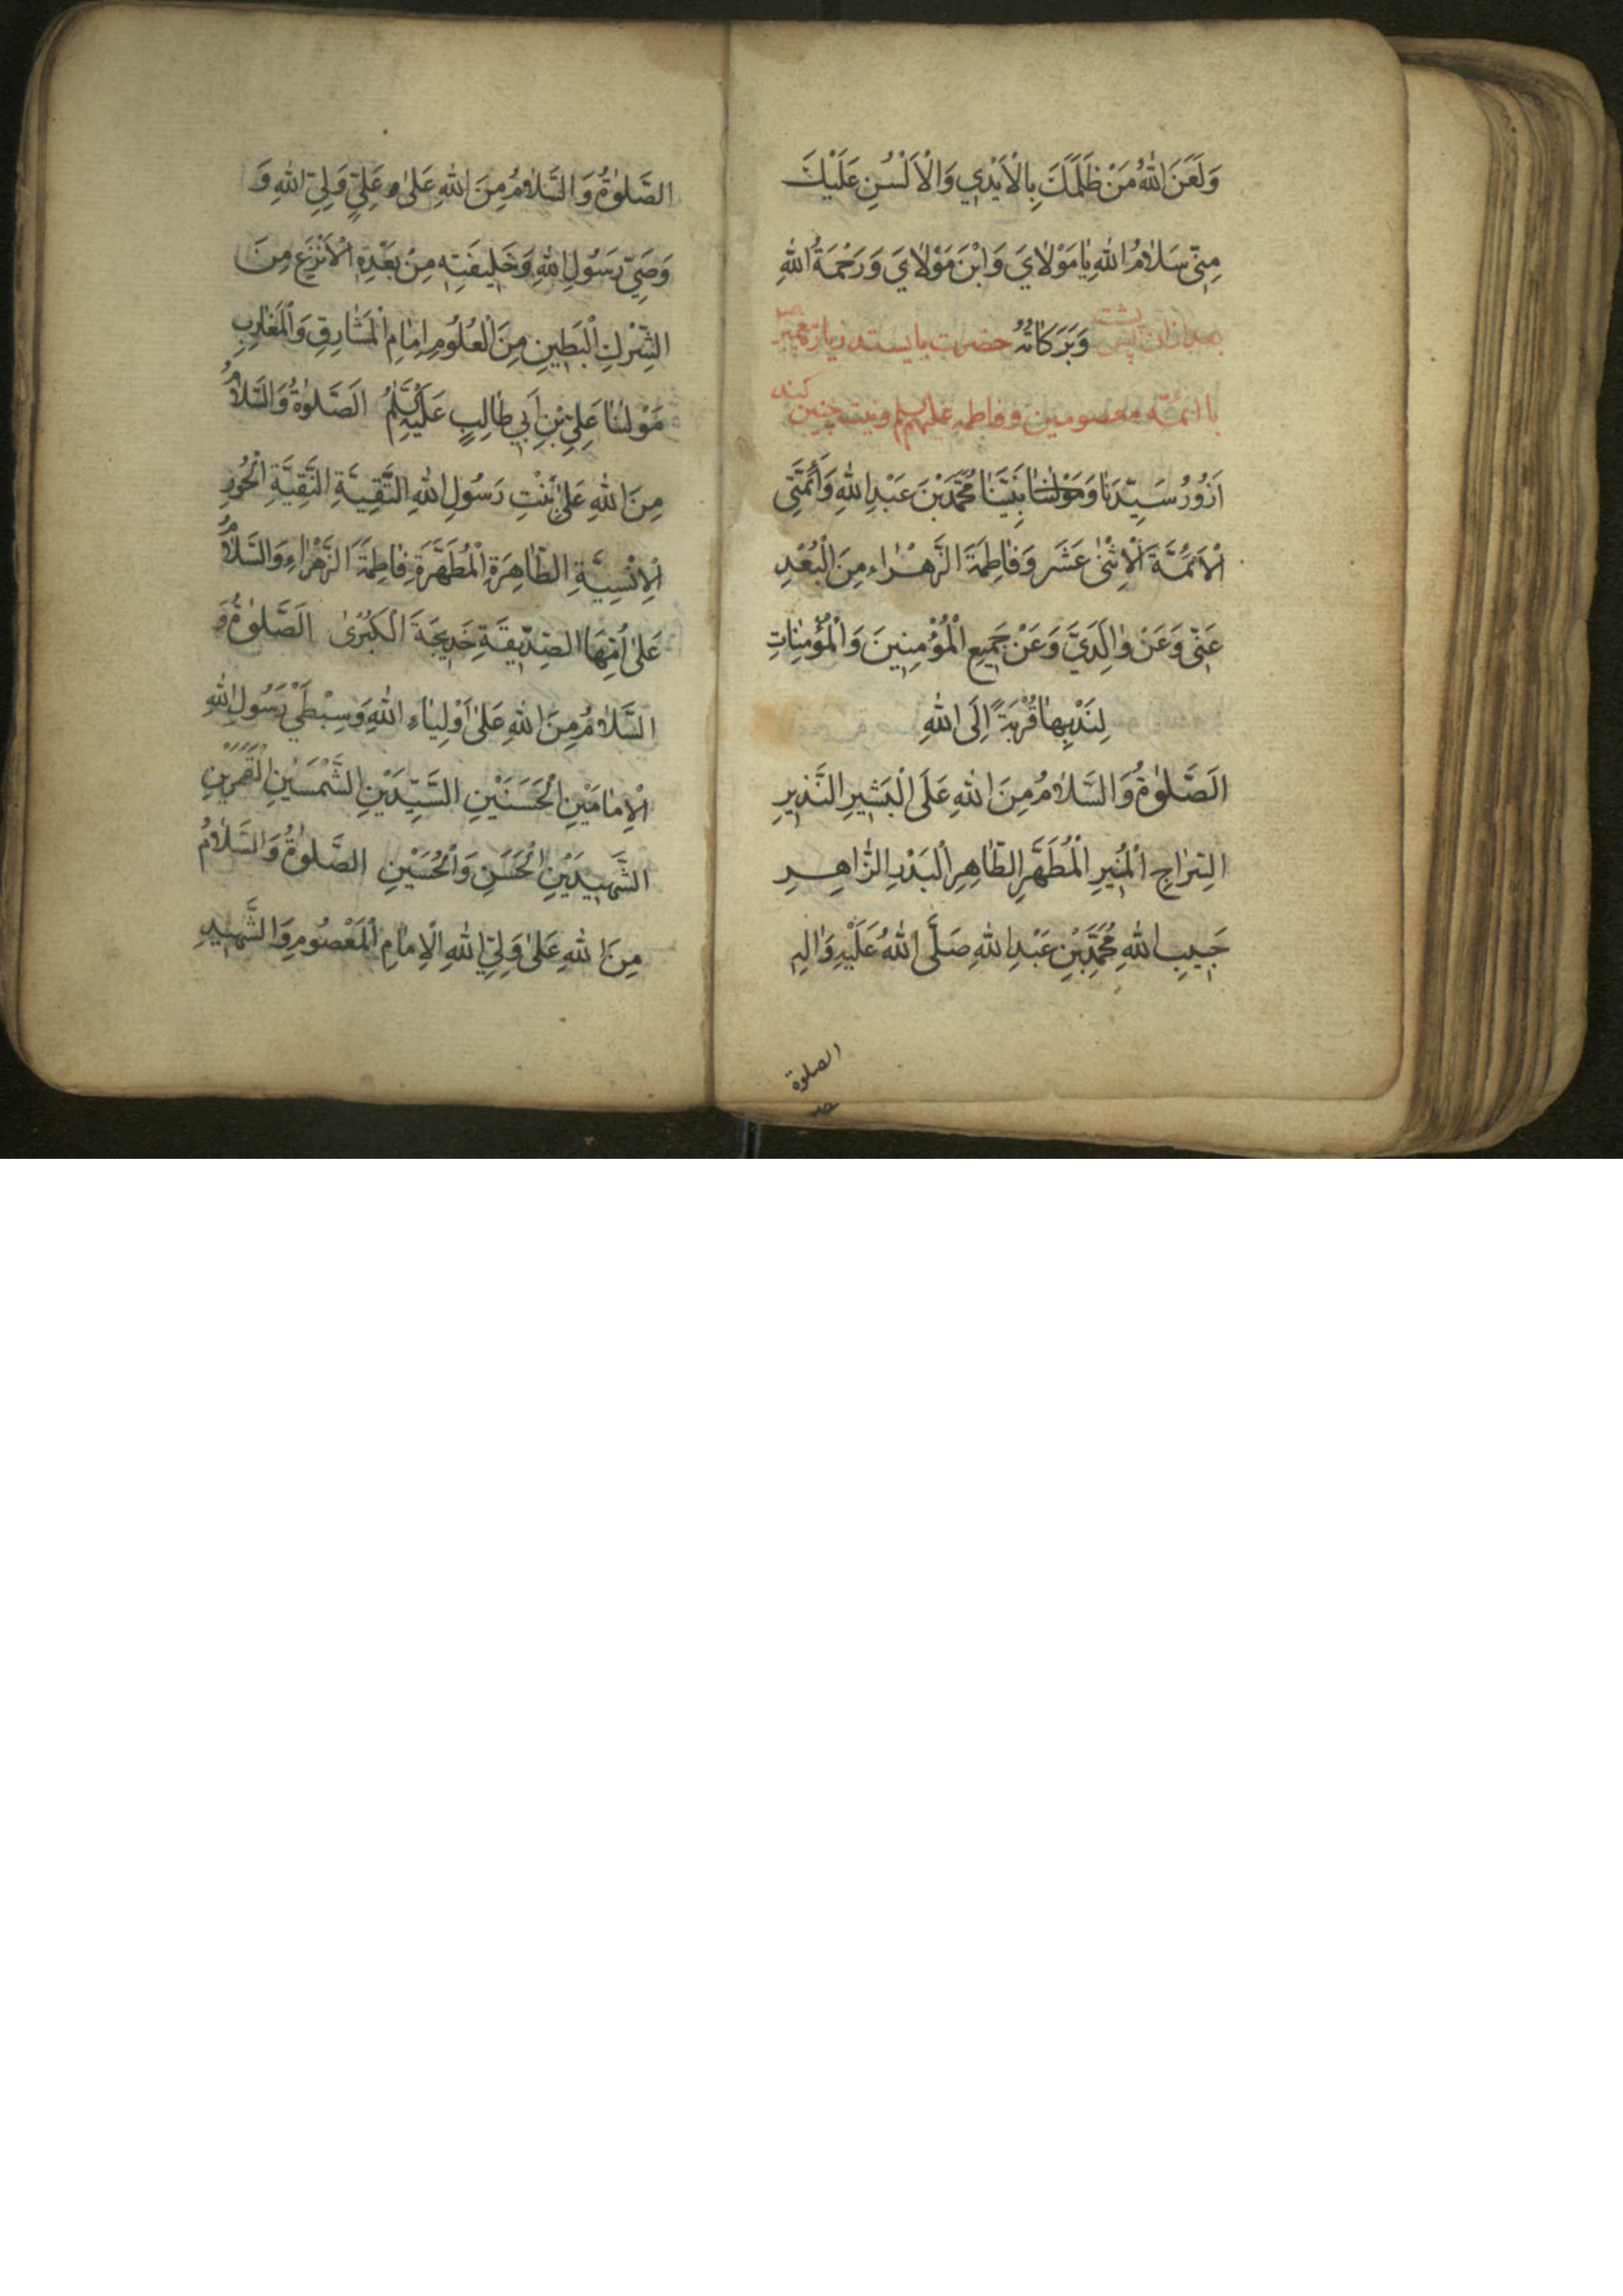 وَلَعَنَ اللهُ مَنْ ظَلَمَكَ بِالْاَيْدِي وَالْاَلْسُنِ عَلَيْكَ
مِنّي سَلَامُ اللهِ يَا مَوْلَايَ وَابْنَ مَوْلَايَ وَرَحْمَةُ اللهِ
وَبَرَكَاتُهُ بعد ازان پیش پشت حضرت بایستد زیارت
با ائمّه معصومین و فاطمه علیهم السلم و نیت چنین کند
اَزُورُ سَيِّدَنَا وَمَوْلٰنَا نَبِيَّنَا مُحَمَّدَ بْنَ عَبْدِ اللهِ وَأَئِمَّتِي
الْاَئِمَّةَ الْاِثْنٰى عَشَر وَفَاطِمَةَ الزَّهْرَاءِ مِنَ الْبُعْدِ
عَنّي وَعَنْ وٰالِدَيَّ وَعَنْ جَمِيعِ الْمُؤْمِنِينَ وَالْمُؤْمِنٰاتِ
لِنَدْبِهَا قُرْبَةً اِلَى اللهِ
الَصَّلٰوةُ وَالسَّلَامُ مِنَ اللهِ عَلَى الْبَشِيرِ النَّذِيرِ
السِّرَاجِ الْمُنِيرِ الْمُطَهَّرِ الطَّاهِرِ الْبَدْرِ الزَّاهِرِ
حَبِيبِ اللهِ مُحَمَّدِ بْنِ عَبْدِ اللهِ صَلَّى اللهُ عَلَيْهِ وَاٰلِهِ
الصلوة
الصَّلٰوةُ وَالسَّلَامُ مِنَ اللهِ عَلٰى عَلِيٍّ وَلِيِّ اللهِ وَ
وَصِيِّ رَسُولِ اللهِ وَخَلِيفَتِهِ مِنْ بَعْدِهِ الْاَنْزَعِ مِنَ
الشِّرْكِ الْبَطِينِ مِنَ الْعُلُومِ اِمَامِ الْمَشَارِقِ وَالْمَغَارِبِ
مَوْلٰنَا عَلِيِّ بْنِ اَبِي طَالِبٍ عَلَيْهِ السَّلَمُ الَصَّلٰوةُ وَالسَّلَامُ
مِنَ اللهِ عَلٰى بِنْتِ رَسُولِ اللهِ التَّقِيَّةِ النَّقِيَّةِ الْحُورِ
الْاِنْسِيَّةِ الطَّاهِرَةِ الْمُطَهَّرَةِ فَاطِمَةَ الزَّهْرَاءِ وَالسَّلَامُ
عَلٰى اُمِّهَا الصِّدِّيقَةِ خَدِيجَةَ الْكُبْرٰى الَصَّلٰوةُ وَ
السَّلَامُ مِنَ اللهِ عَلٰى اَوْلِيَاءِ اللهِ وَسِبْطَيْ رَسُولِ اللهِ
الْاِمَامَيْنِ الْحَسَنَيْنِ السَّيِّدَيْنِ الشَّمْسَيْنِ الْقَمَرَيْنِ
الشَّهِيدَيْنِ الْحَسَنِ وَالْحُسَيْنِ الصَّلٰوةُ وَالسَّلَامُ
مِنَ اللهِ عَلٰى وَلِيِّ اللهِ الْاِمَامِ الْمَعْصُومِ وَالشَّهِيدِ